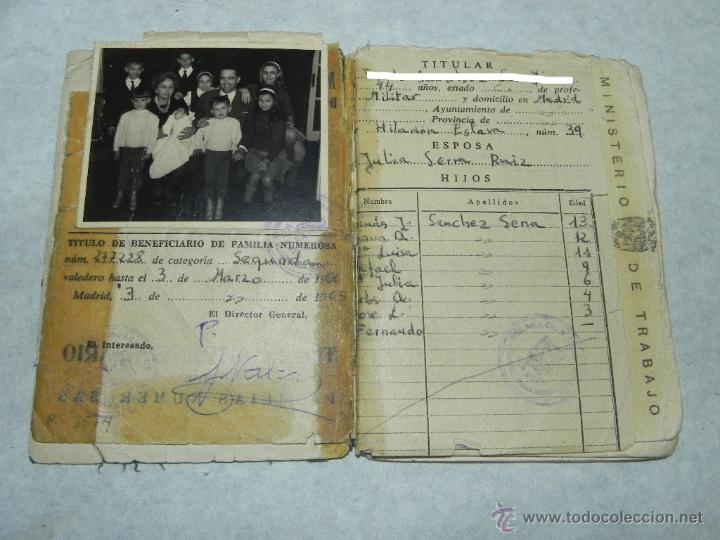 TITULO DE BENEFICIARIO DE FAMILIA NUMEROSA
núm. 217228 de categoría Segunda
valedero hasta el 3 de Marzo de 1966
Madrid, 3 de " de 1965
El Director General,
P.
El Interesado,
TITULAR
44 años, estado C. de profe-
Militar y domicilio en Madrid
Ayuntamiento de "
Provincia de "
Hilarión Eslava, núm. 39
ESPOSA
Julia Serra Ruiz
HIJOS
Nombre Apellidos Edad
Sánchez Serra 13
" 12
Luisa " 11
fael " 9
Julia " 6
" 4
" 3
Fernando " 1
MINISTERIO DE TRABAJO
© www.todocoleccion.net